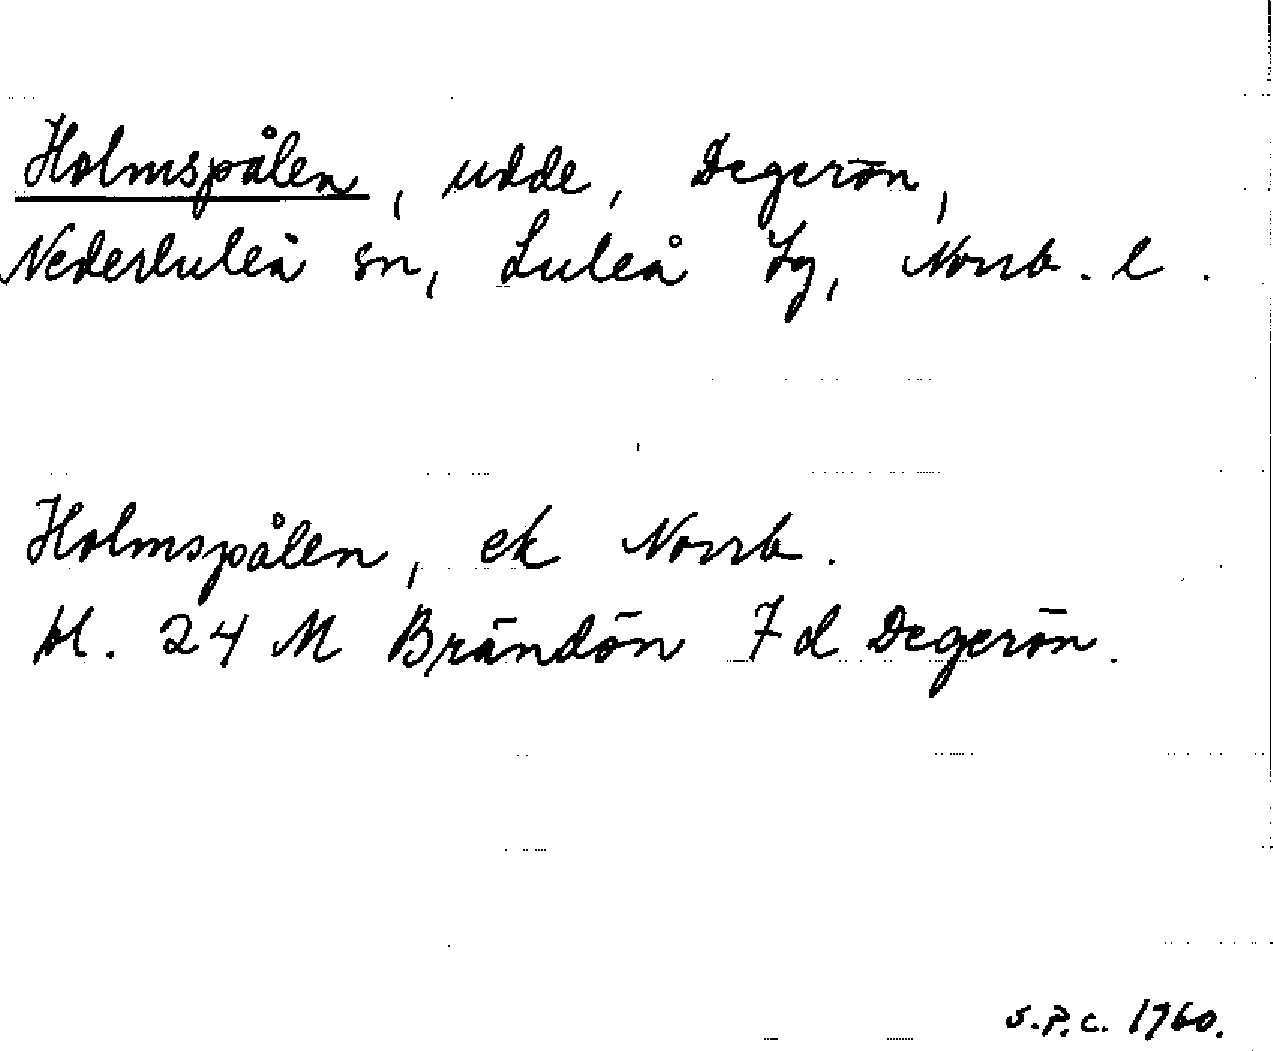 Holmspålen, udde, Degerön,
Nederluleå sn, Luleå lg, Norrb. l.
Holmspålen, ek Norrb.
bl. 24 M Brändön 7 d Degerön.
S.P.C. 1960.